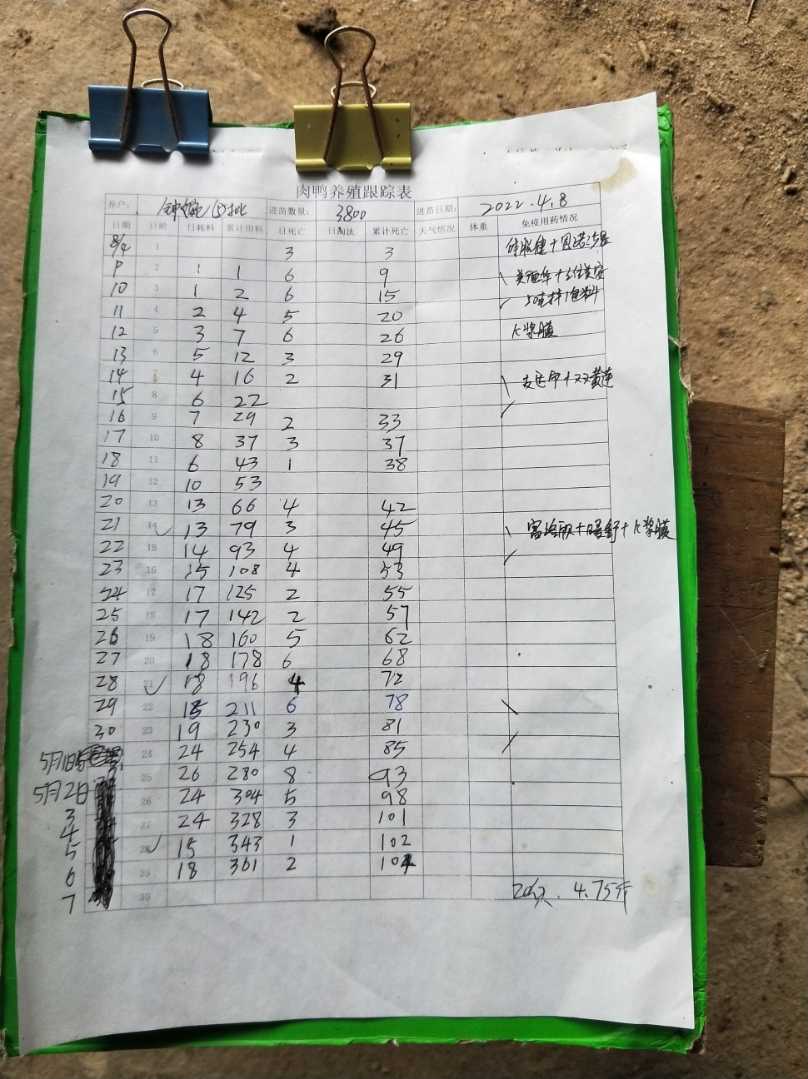 肉鸭养殖跟踪表
养户: 进苗数量: 3800 进苗日期: 2022.4.8
日期 日龄 日耗料 累计用料 日死亡 日淘汰 累计死亡 天气情况 体重 免疫用药情况
8/4 1 3 3
9 2 1 1 6 9
10 3 1 2 6 15
11 4 2 4 5 20
12 5 3 7 6 26 浆膜
13 6 5 12 3 29
14 7 4 16 2 31
15 8 6 22
16 9 7 29 2 33
17 10 8 37 3 37
18 11 6 43 1 38
19 12 10 53
20 13 13 66 4 42
21 14 ✓ 13 79 3 45 浆膜
22 15 14 93 4 49
23 16 15 108 4 53
24 17 17 125 2 55
25 18 17 142 2 57
26 19 18 160 5 62
27 20 18 178 6 68
28 21 ✓ 18 196 4 72
29 22 15 211 6 78
30 23 19 230 3 81
5月1日 24 24 254 4 85
5月2日 25 26 280 8 93
3 26 24 304 5 98
4 27 24 328 3 101
5 28 ✓ 15 343 1 102
6 29 18 361 2 104
7 30 20只. 4.75斤